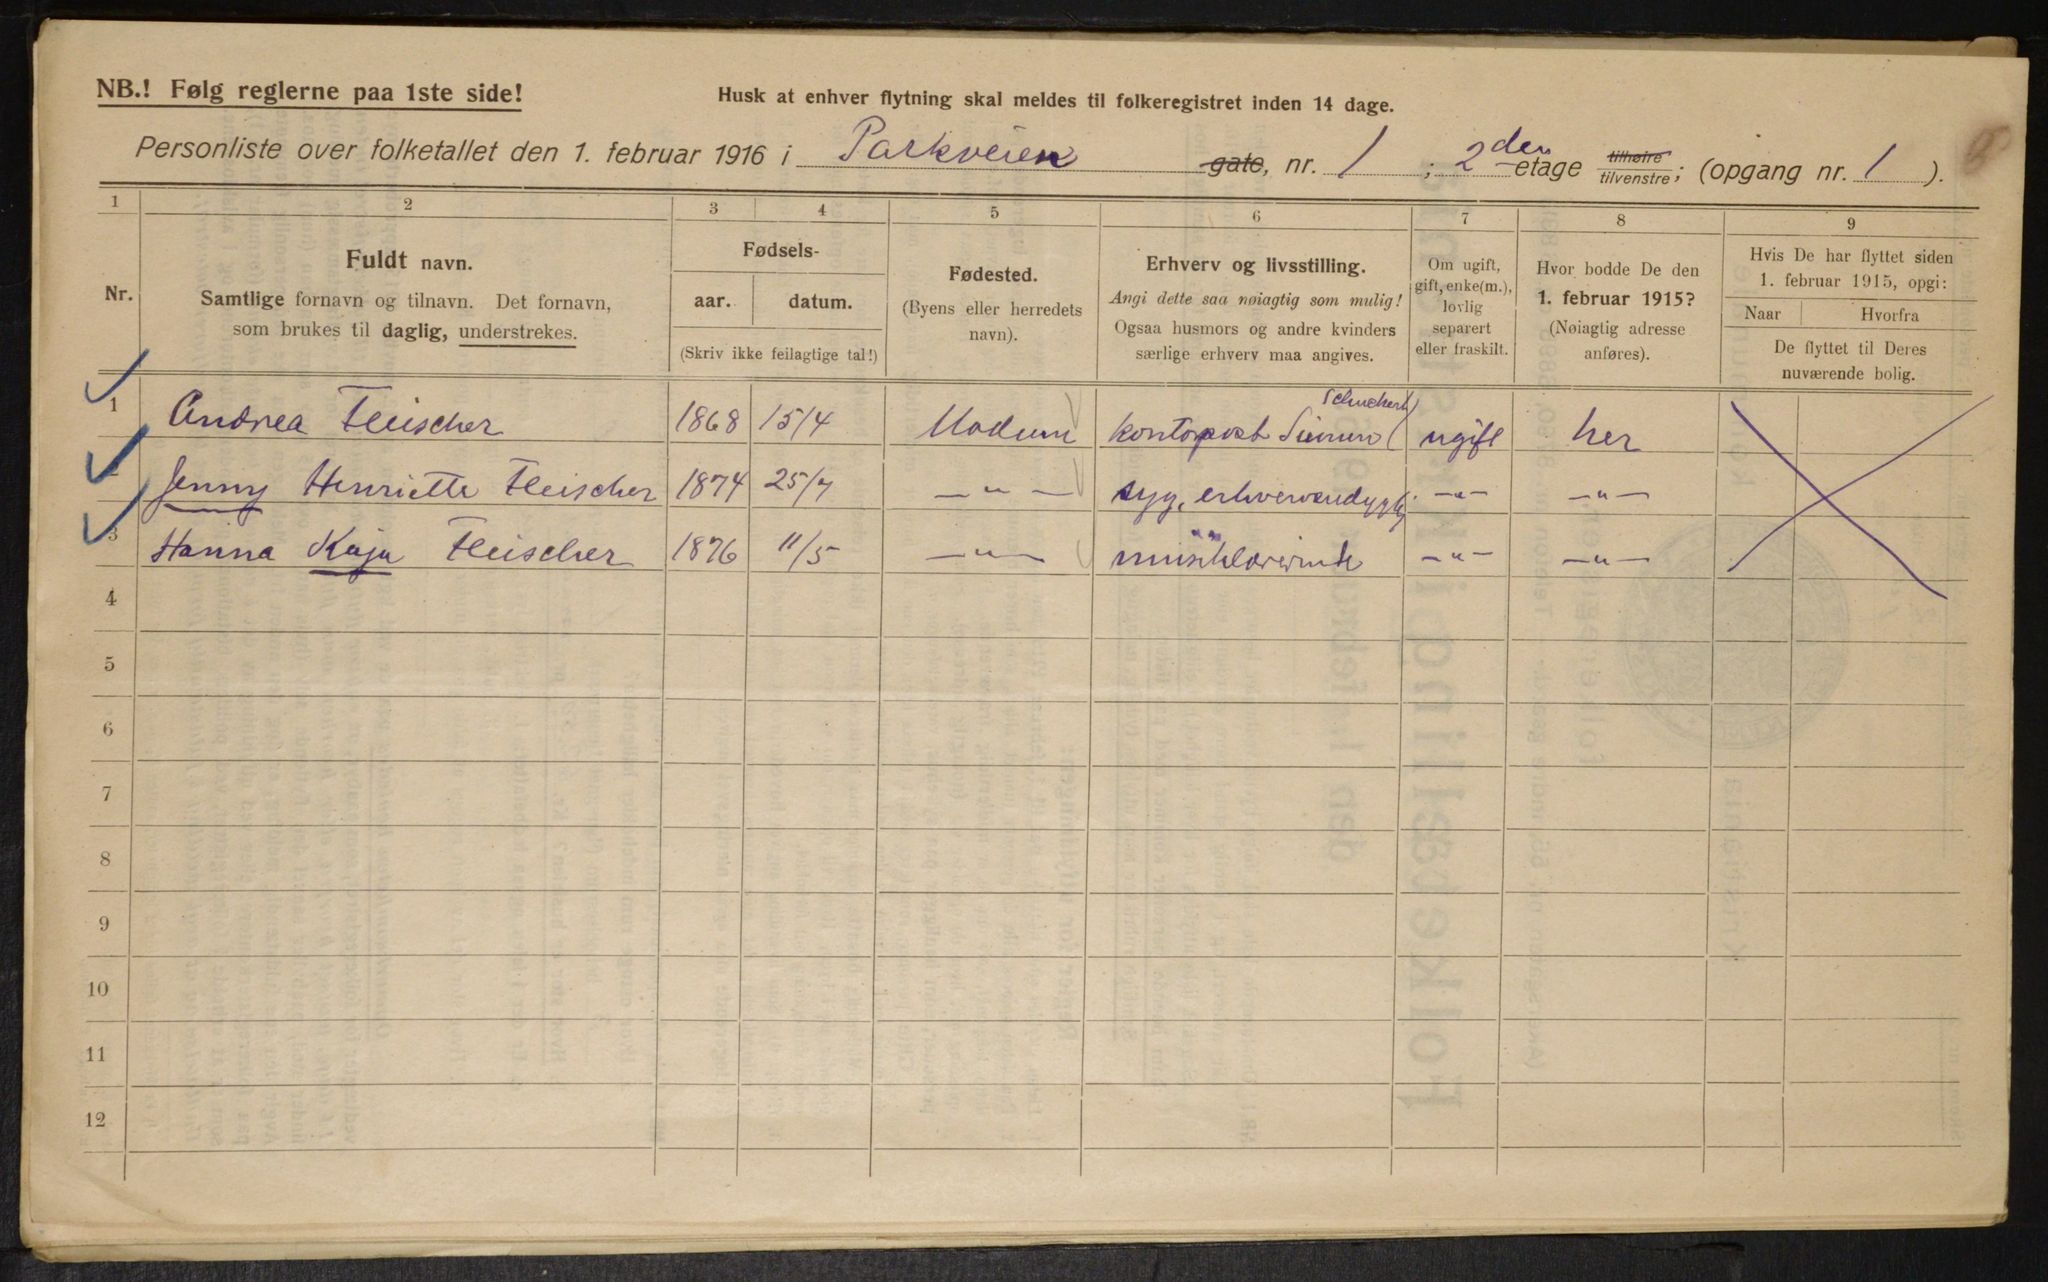 NB.! Følg reglerne paa 1ste side!
Husk at enhver flytning skal meldes til folkeregistret inden 14 dage.
Personliste over folketallet den 1. februar 1916 i Parkveien gate, nr. 1 ; 2den etage tilhøire tilvenstre; (opgang nr. 1 ).
1 2 3 4 5 6 7 8 9
Nr.
Fuldt navn.
Samtlige fornavn og tilnavn. Det fornavn,
som brukes til daglig, understrekes.
Fødsels-
aar. datum.
(Skriv ikke feilagtige tal!)
Fødested.
(Byens eller herredets
navn).
Erhverv og livsstilling.
Angi dette saa nøiagtig som mulig!
Ogsaa husmors og andre kvinders
særlige erhverv maa angives.
Om ugift,
gift, enke(m.),
lovlig
separert
eller fraskilt.
Hvor bodde De den
1. februar 1915?
(Nøiagtig adresse
anføres).
Hvis De har flyttet siden
1. februar 1915, opgi:
Naar Hvorfra
De flyttet til Deres
nuværende bolig.
Schuckert
1 Andrea Fleischer 1868 15/4 Modum kontorpost ugift her
2 Jenny Henriette Fleischer 1874 25/7 —"— syg, —"— —"—
3 Hanna Kaja Fleischer 1876 11/5 —"— musiklærerinde —"— —"—
4
5
6
7
8
9
10
11
12